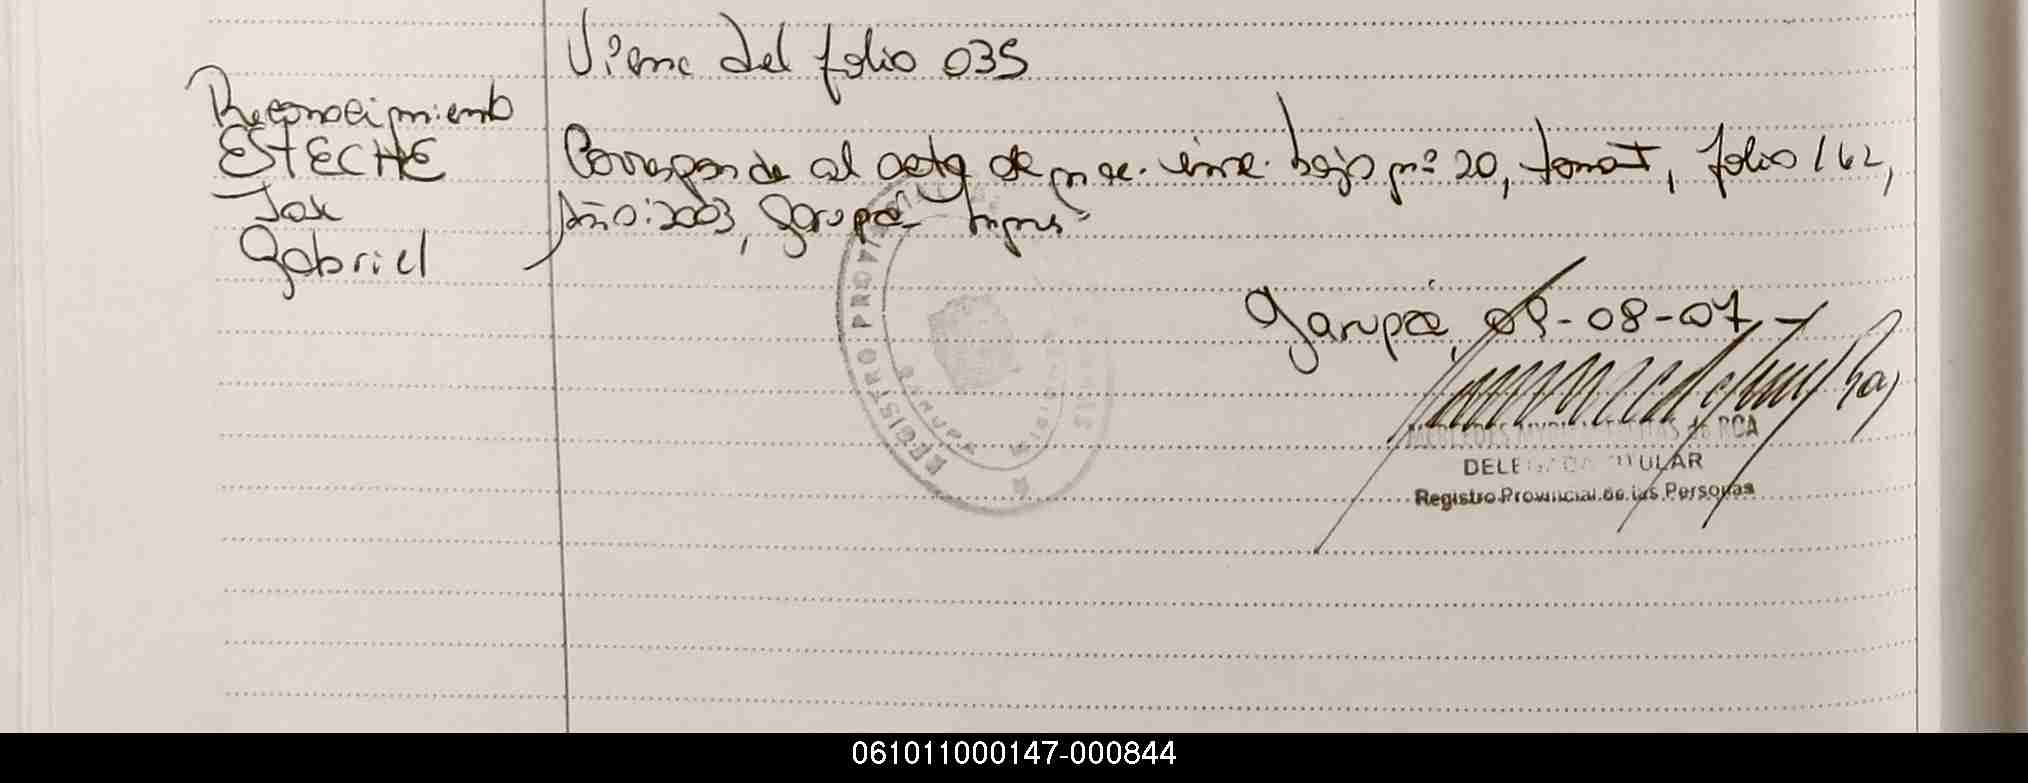 Viene del folio 035
Reconocimiento
ESTECHE
José
Gabriel
Corresponde al acta de nac. insc. bajo nº 20, tomo I, folio 162,
Año: 2003, Garupá Mnes
Garupá, 09-08-07
REGISTRO PROVINCIAL
DELEGADA TITULAR
Registro Provincial de las Personas
061011000147-000844